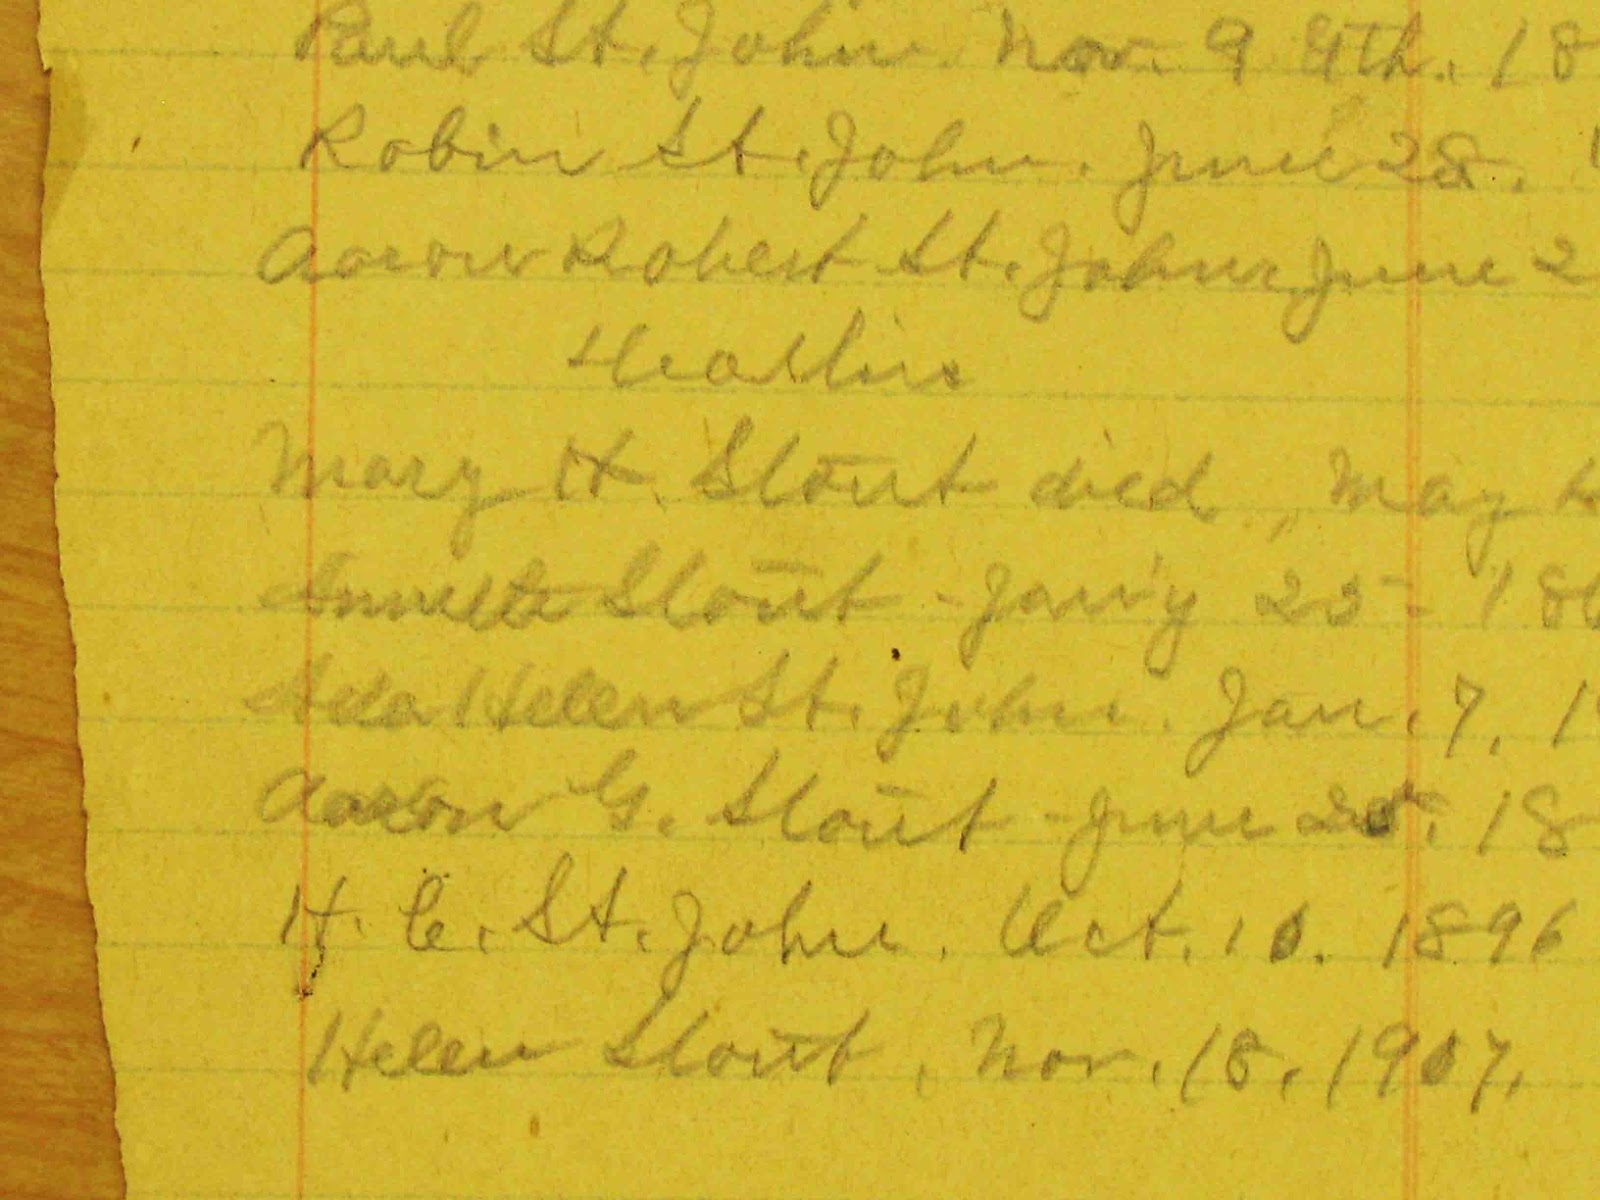 Paul St. John. Nov. 9 9th. 18
Robin St. John. June 28.
Aaron Robert St. John, June 2
Deaths
Mary H. Stout died, May
Stout - Jan'y 25 - 186
Ada Helen St. John. Jan. 7. 1
Aaron G. Stout - June 25. 18
H. C. St. John. Oct. 10. 1896
Helen Stout, Nov. 18. 1907.